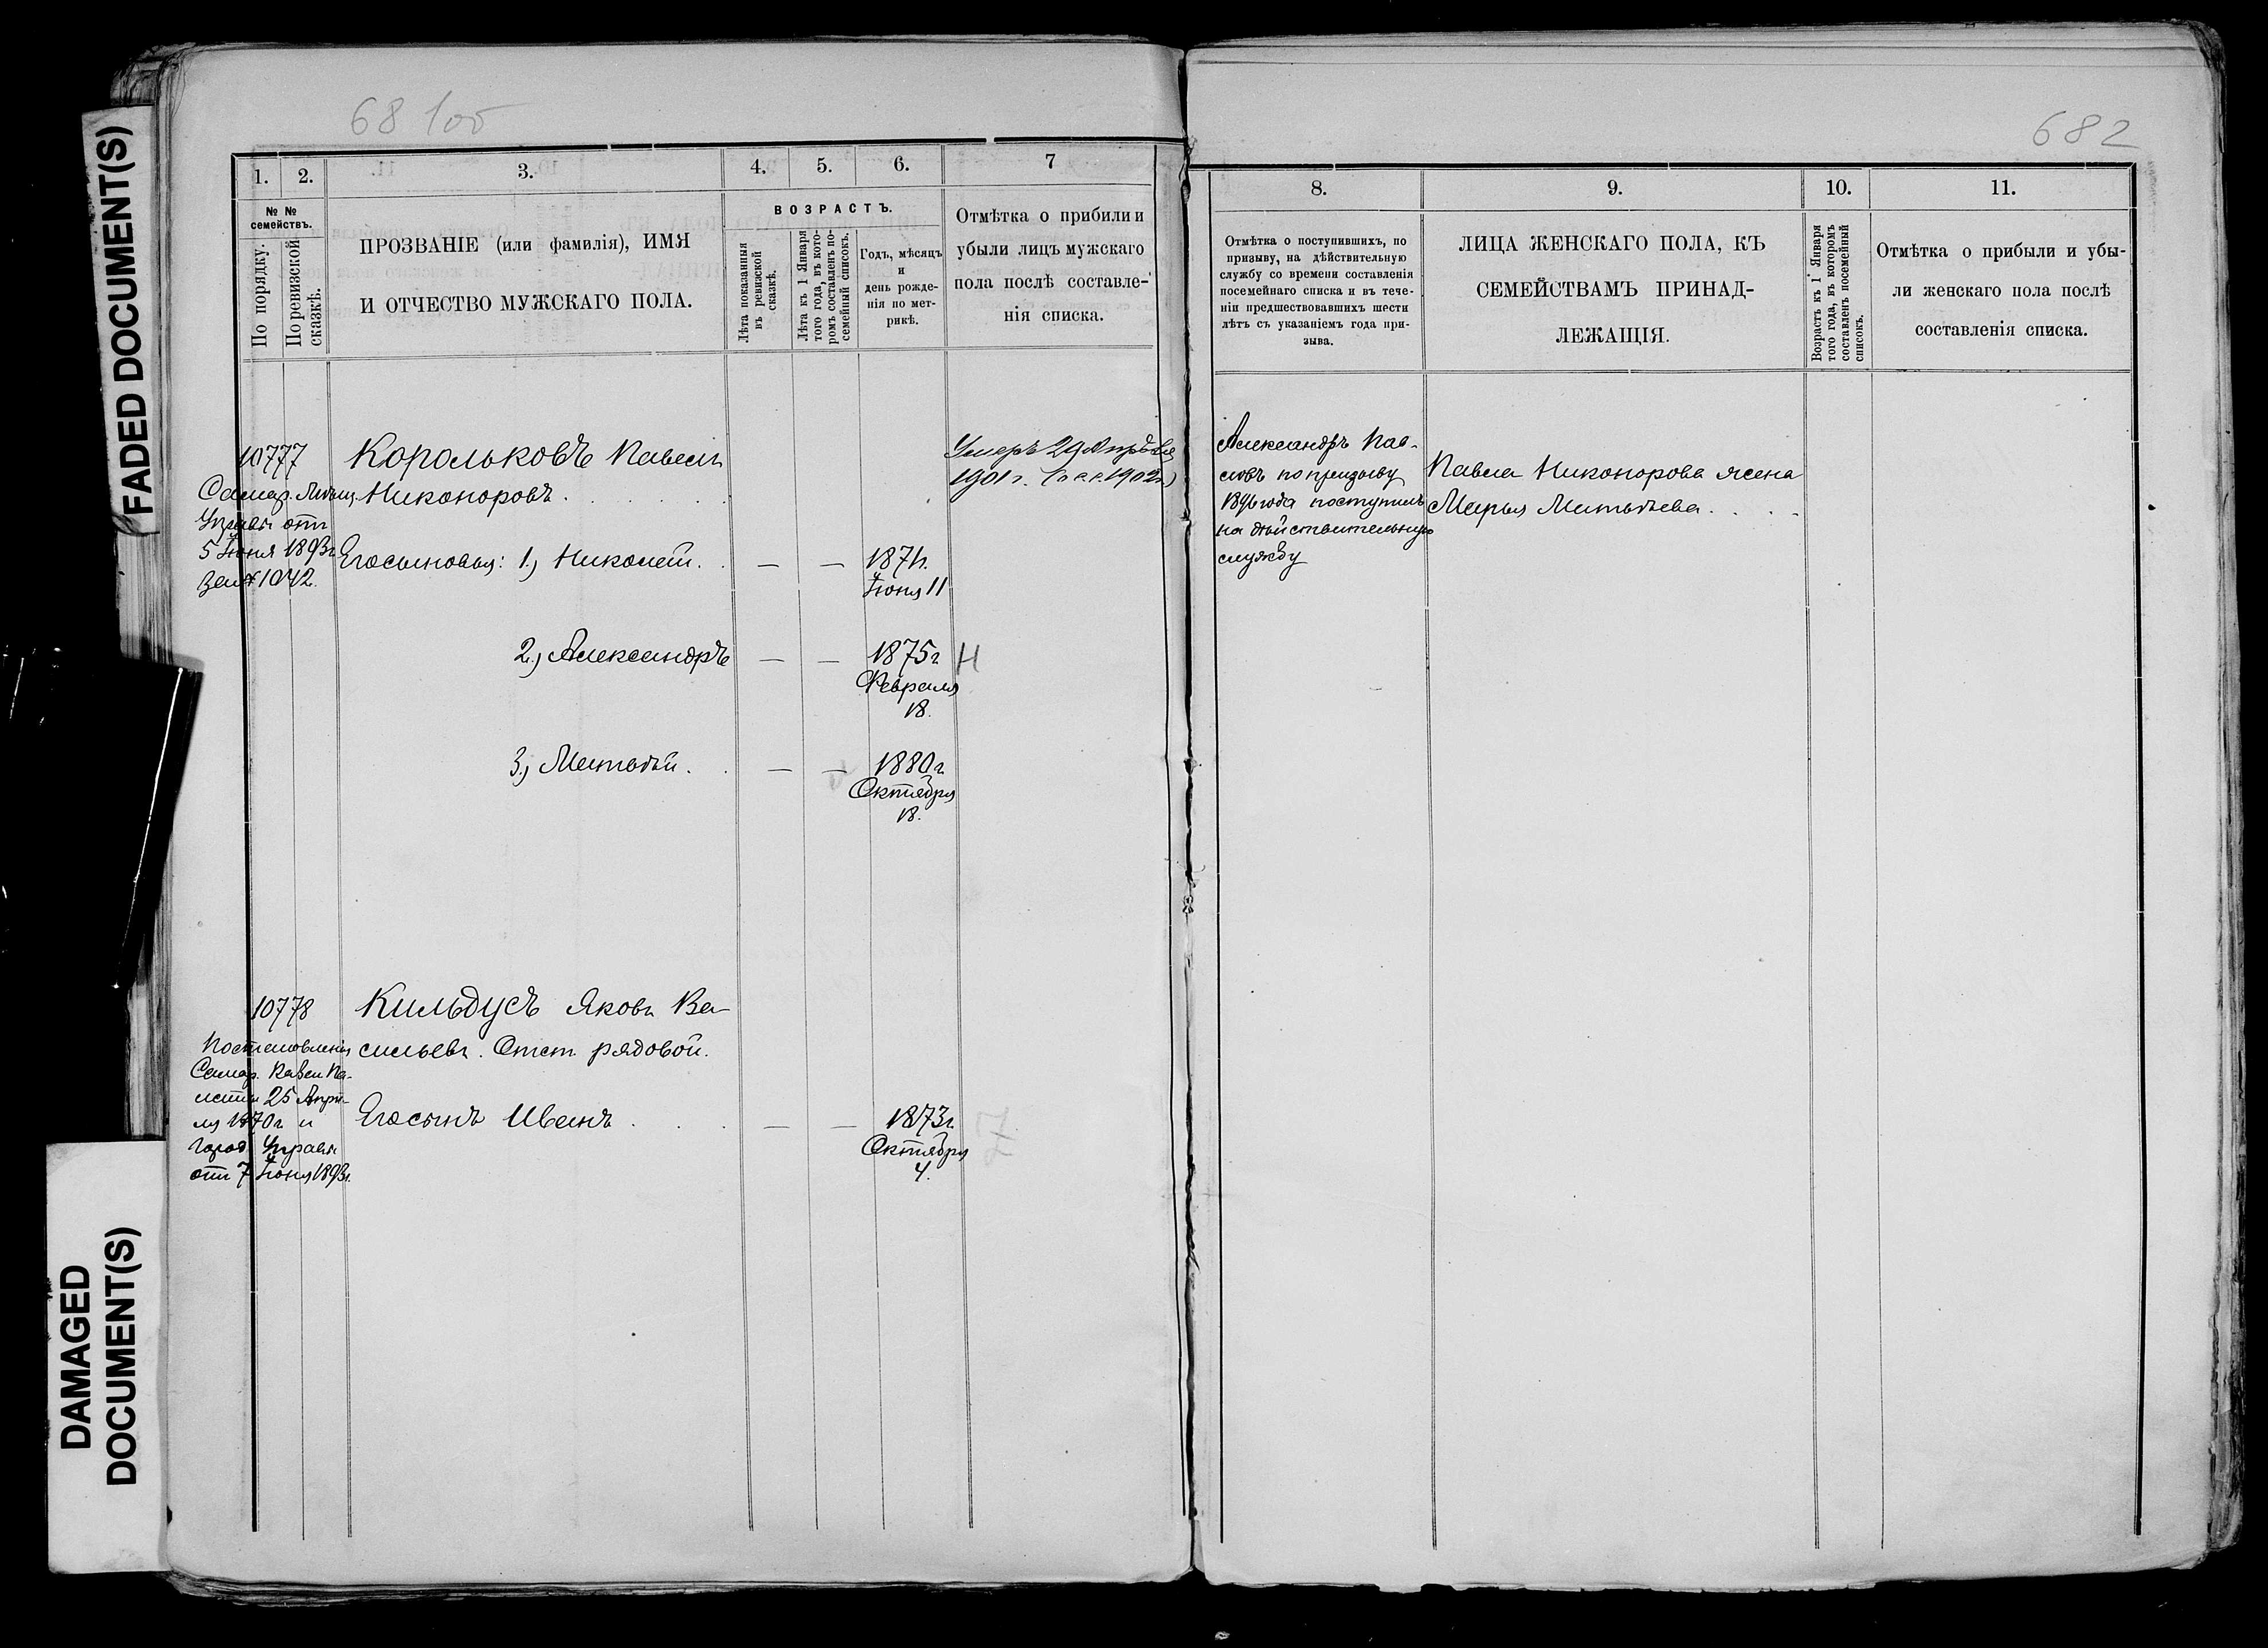 FADED DOCUMENT(S)
DAMAGED
DOCUMENT(S)
68 1об
1. 2. 3. 4. 5. 6. 7
№ №
семействъ.
По порядку.
По ревизской
сказкѣ.
ПРОЗВАНІЕ (или фамилія), ИМЯ
И ОТЧЕСТВО МУЖСКАГО ПОЛА.
ВОЗРАСТЪ.
Лѣта показанныя
въ ревизской
сказкѣ.
Лѣта къ 1 Января
того года, въ кото-
ромъ составленъ по-
семейный списокъ.
Годъ, мѣсяцъ
и
день рожде-
нія по мет-
рикѣ.
Отмѣтка о прибыли и
убыли лицъ мужскаго
пола послѣ составле-
нія списка.
10777
Самар. Мѣщ.
Управы отъ
5 Іюня 1893г.
за № 1042.
Корольковъ Павелъ
Никоноровъ.
Умеръ 29 Апрѣля
1901 г.
Его сыновья: 1, Николай. — — 1871г.
Іюня 11
2, Александръ — — 1875г. Н
Февраля
18.
3, Матвѣй. — — 1880г.
Октября
18.
10778
Постановленія
Самар. Казен Па-
латы 25 Апрѣ-
ля 1870г. и
Город. Управы
отъ 7 Іюня 1893г.
Кильдусъ Яковъ Ва-
сильевъ. Отст. рядовой.
Его сынъ Иванъ — — 1873г.
Октября
4.
682
8. 9. 10. 11.
Отмѣтка о поступившихъ, по
призыву, на дѣйствительную
службу со времени составленія
посемейнаго списка и въ тече-
ніи предшествовавшихъ шести
лѣтъ съ указаніемъ года при-
зыва.
ЛИЦА ЖЕНСКАГО ПОЛА, КЪ
СЕМЕЙСТВАМЪ ПРИНАД-
ЛЕЖАЩІЯ.
Возрастъ къ 1 Января
того года, въ которомъ
составленъ посемейный
списокъ.
Отмѣтка о прибыли и убы-
ли женскаго пола послѣ
составленія списка.
Александръ Пав-
ловъ по призыву
1896 года поступилъ
на дѣйствительную
службу
Павла Никонорова жена
Марья Матвѣева.